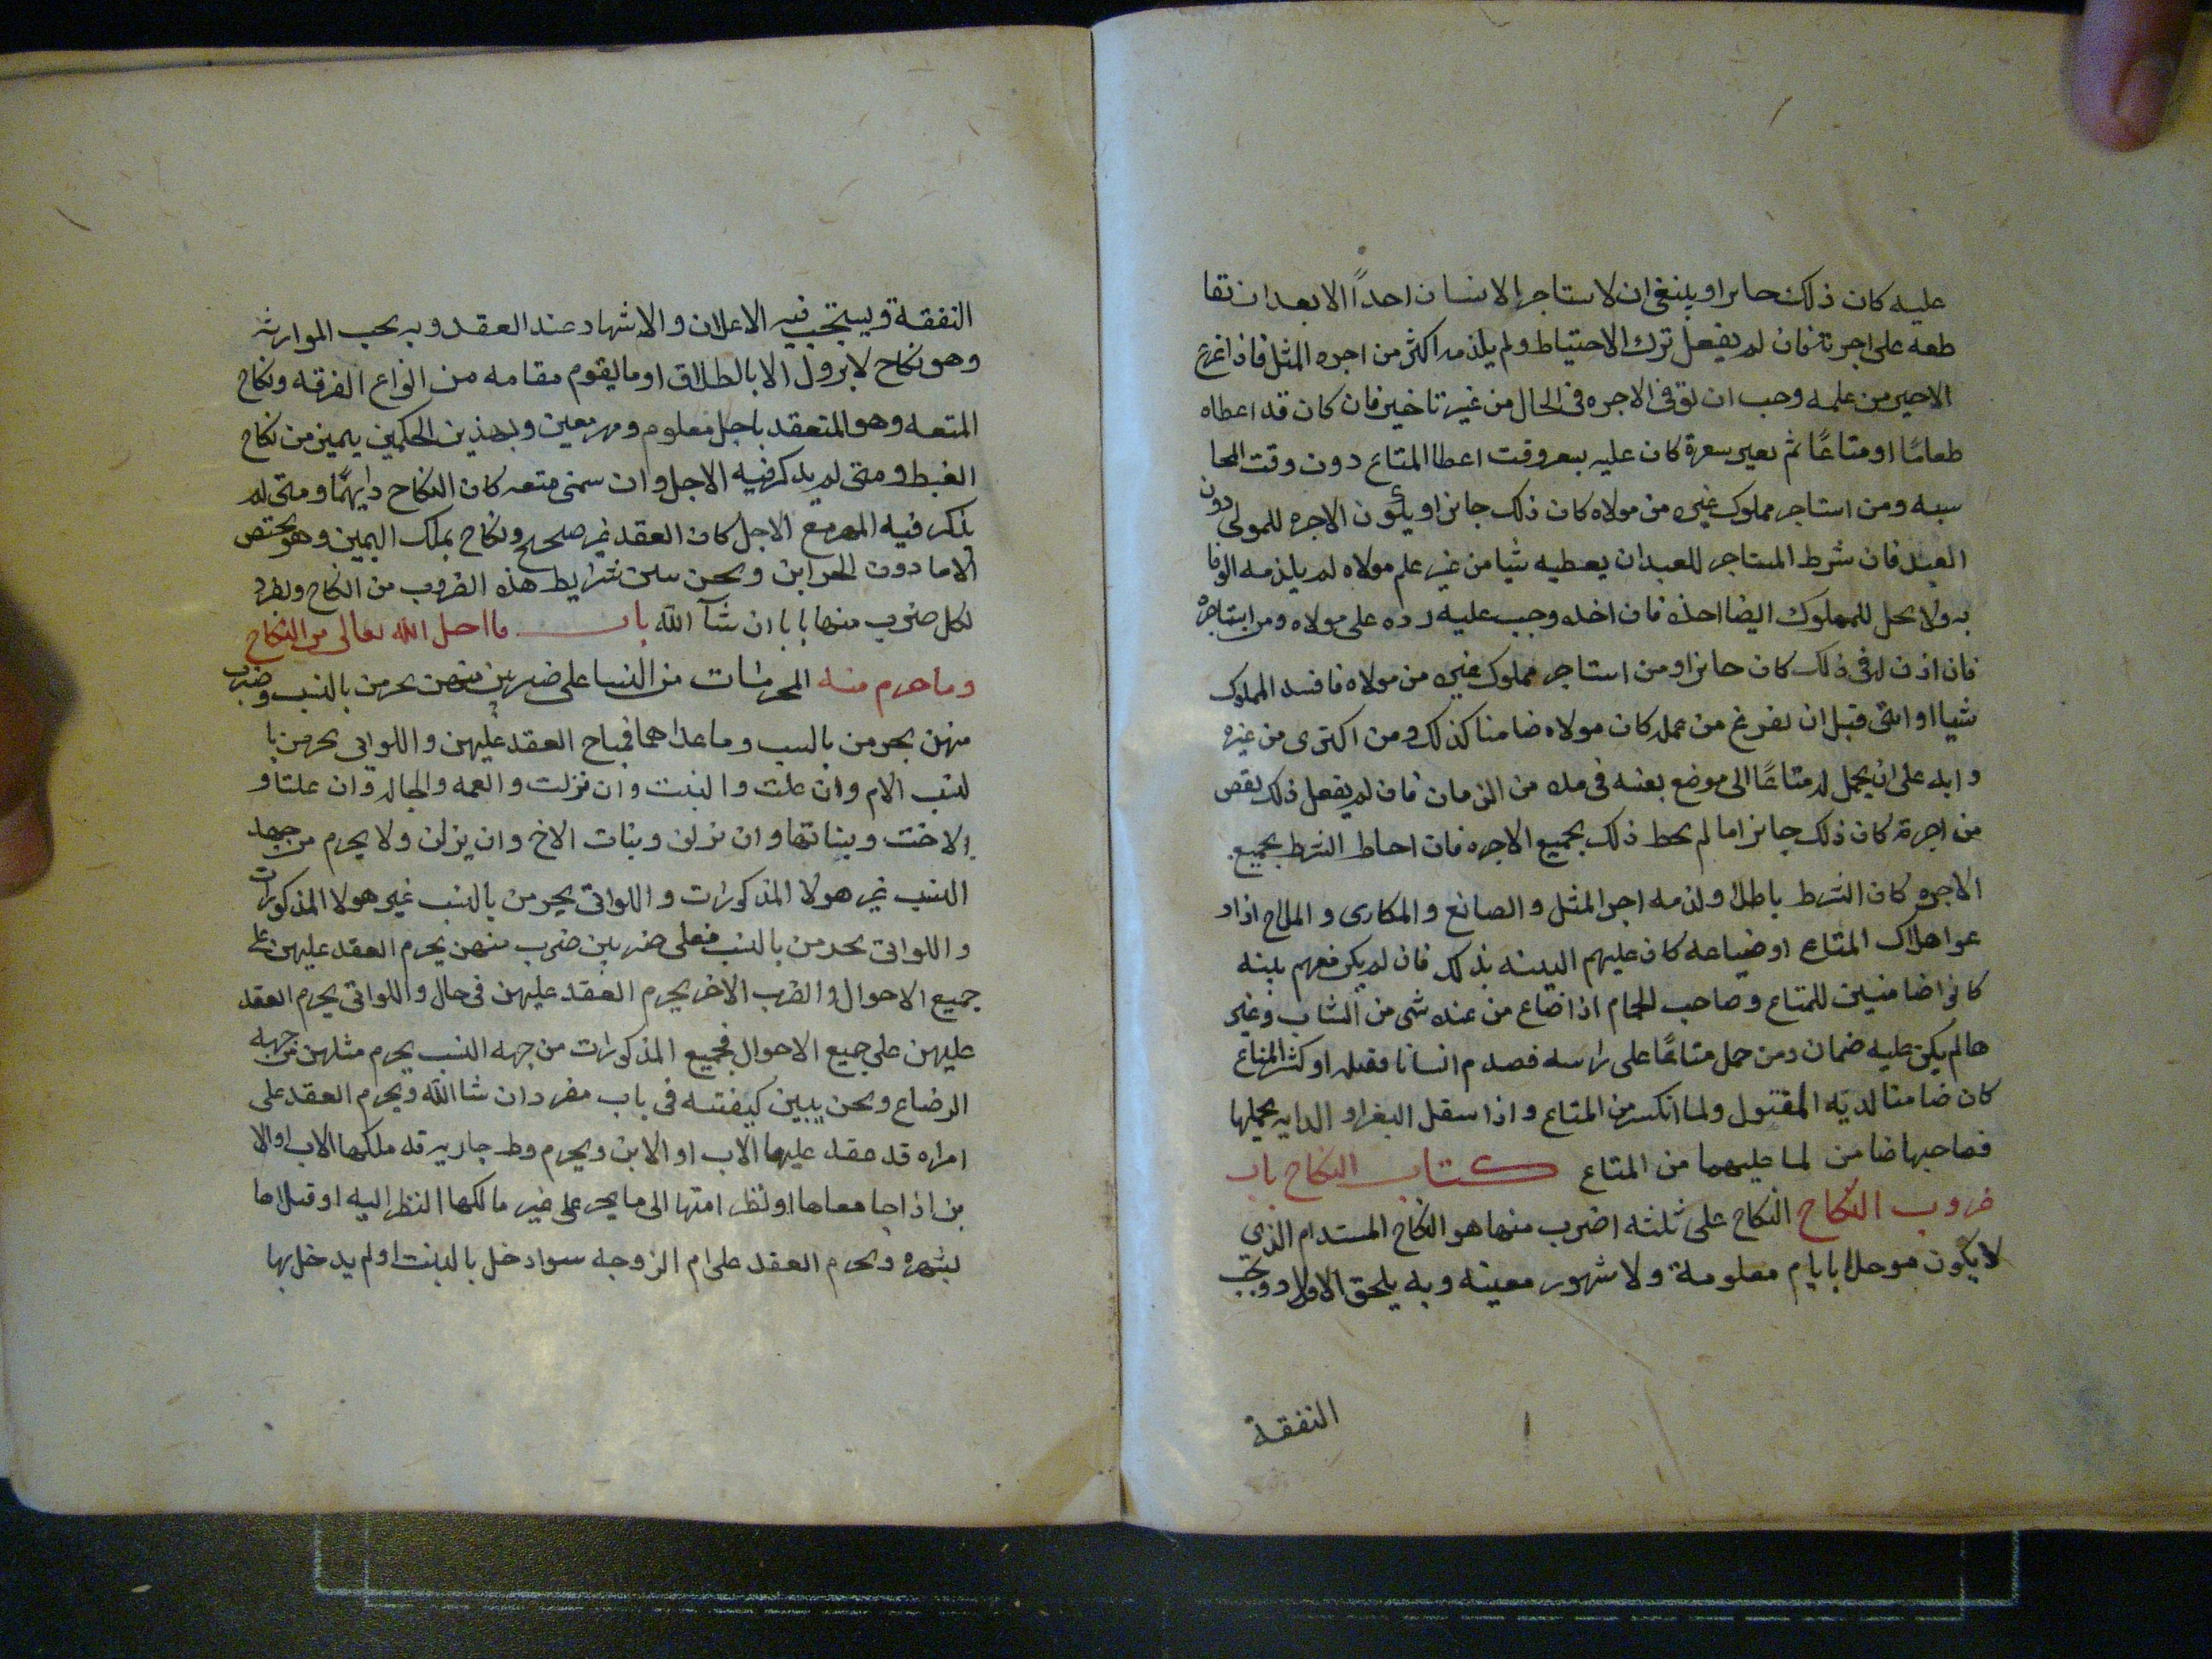 عليه كان ذلك جايزا وينبغي ان لا ستاجر الانسان احداً الا بعد ان تقا
طعه على اجرته فان لم يفعل ترك الاحتياط ولم يلزمه اكثر من اجره المثل فاذا فرغ
الاجير من عمله وجب ان توفى الاجره فى الحال من غير تاخير فان كان قد اعطاه
طعامًا او متاعًا ثم تغير سعره كان عليه بسعر وقت اعطا المتاع دون وقت المحا
سبه ومن استاجر مملوك غيره من مولاه كان ذلك جايزا ويكون الاجره للمولى دون
العبد فان شرط المستاجر للعبد ان يعطيه شيا من غير علم مولاه لم يلزمه الوفا
به ولا يحل للمملوك ايضا اخذه فان اخذه وجب عليه رده على مولاه ومن استاجره
فان اذن له فى ذلك كان جايزا ومن استاجر مملوك غيره من مولاه فافسد المملوك
شيا او ابق قبل ان يفرغ من عمله كان مولاه ضامنا كذلك ومن اكترى من غيره
دابه على ان يحمل له متاعًا الى موضع بعينه فى مده من الزمان فان لم يفعل ذلك نقص
من اجرته كان ذلك جايزا ما لم يحط ذلك بجميع الاجره فان احاط الشرط بجميع
الاجره كان الشرط باطلا ولزمه اجر المثل والصانع والمكارى والملاح اذا اد
عوا هلاك المتاع او ضياعه كان عليهم البينه بذلك فان لم يكن معهم بينه
كانوا ضامنين للمتاع وصاحب الحمام اذا ضاع من عنده شى من الثياب وغير
ها لم يكن عليه ضمان ومن حمل متاعًا على راسه فصدم انسانا فقتله او كسر المتاع
كان ضامنا لديه المقتول ولما انكسر من المتاع واذا استقل البعير او الدابه بحملها
فصاحبها ضامن لما عليهما من المتاع كتاب النكاح باب
ضروب النكاح النكاح على ثلثه اضرب منها هو النكاح المستدام الذي
لا يكون موجلا بايام معلومة ولا شهور معينه وبه يلحق الاولاد وتجب
النفقة
النفقة ويستحب فيه الاعلان والاشهاد عند العقد وبه يجب الموارثه
وهو نكاح لا يزول الا بالطلاق او ما يقوم مقامه من انواع الفرقه ونكاح
المتعه وهو المنعقد باجل معلوم ومهر معين وبهذين الحكمين يتميز من نكاح
الغبطه ومتى لم يذكر فيه الاجل وان سمى متعه كان النكاح دايمًا ومتى لم
يذكر فيه المهر مع الاجل كان العقد غير صحيح ونكاح بملك اليمين وهو يختص
الاما دون الحراير ونحن نبين شرايط هذه الضروب من النكاح ونفرد
لكل ضرب منها بابا ان شآ الله باب ما احل الله تعالى من النكاح
وما حرم منه المحرمات من النسا على ضربين ضرب منهن يحرمن بالنسب وضرب
منهن يحرمن بالسبب وما عداهما فمباح العقد عليهن واللواتي يحرمن با
لنسب الام وان علت والبنت وان نزلت والعمه والخاله وان علتا و
الاخت وبناتها وان نزلن وبنات الاخ وان نزلن ولا يحرم من جهه
النسب غير هولا المذكورات واللواتى يحرمن بالنسب غير هولا المذكورات
واللواتى يحرمن بالسبب فعلى ضربين ضرب منهن يحرم العقد عليهن على
جميع الاحوال والضرب الاخر يحرم العقد عليهن فى حال واللواتى يحرم العقد
عليهن على جميع الاحوال فجميع المذكورات من جهه النسب يحرم مثلهن من جهه
الرضاع ونحن نبين كيفتسه فى باب مفرد ان شا الله ويحرم العقد على
امراه قد عقد عليها الاب او الابن ويحرم وط جاريه قد ملكها الاب او الا
بن اذا جامعاها او نظر امنها الى ما يحرم على غير مالكها النظر اليه او قبلاها
بشهوه ويحرم العقد على ام الزوجه سوا دخل بالبنت او لم يدخل بها